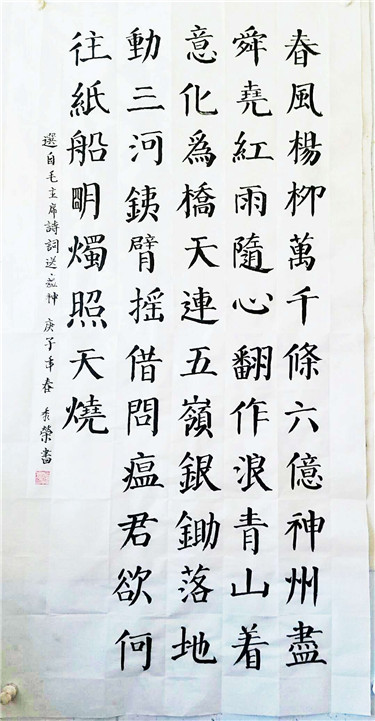 春風楊柳萬千條六億神州盡
舜堯紅雨隨心翻作浪青山着
意化爲橋天連五嶺銀鋤落地
動三河銕臂摇借問瘟君欲何
往紙船明燭照天燒
選自毛主席詩詞送瘟神 庚子年春 秀榮書